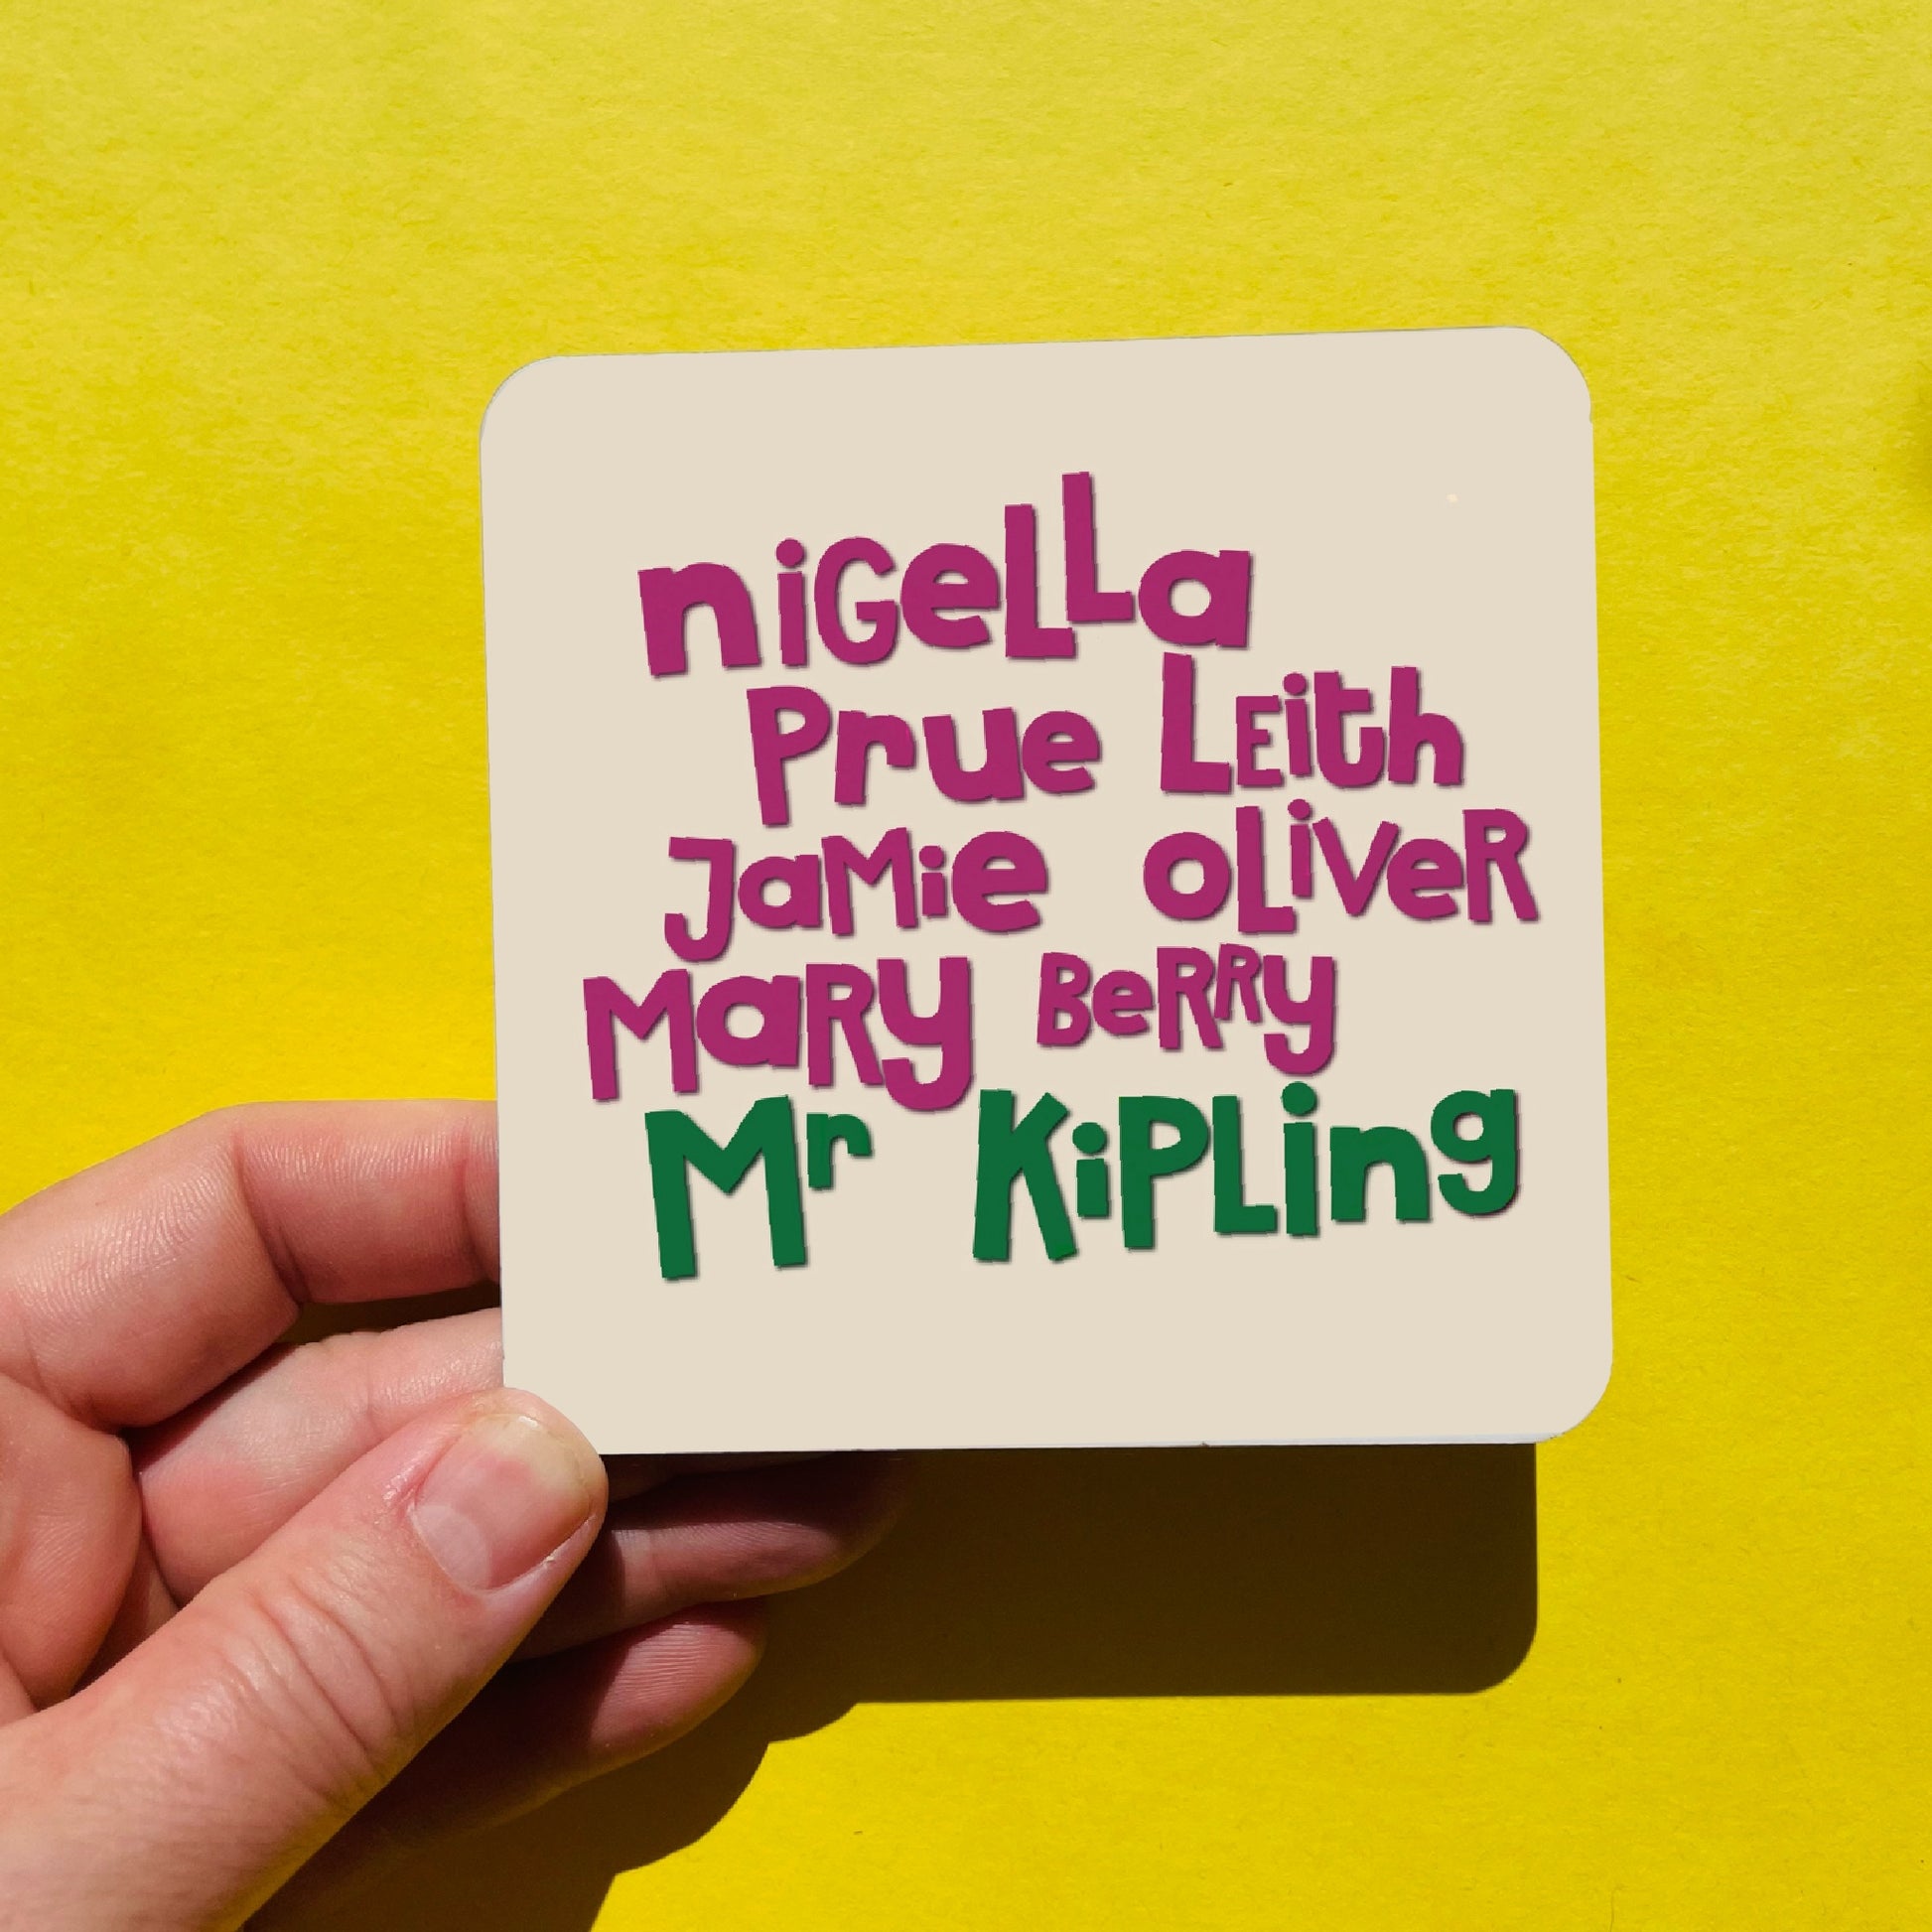 niGeLLa
Prue LEith
JaMie oLiVeR
MaRy BeRRy
Mr KiPLing